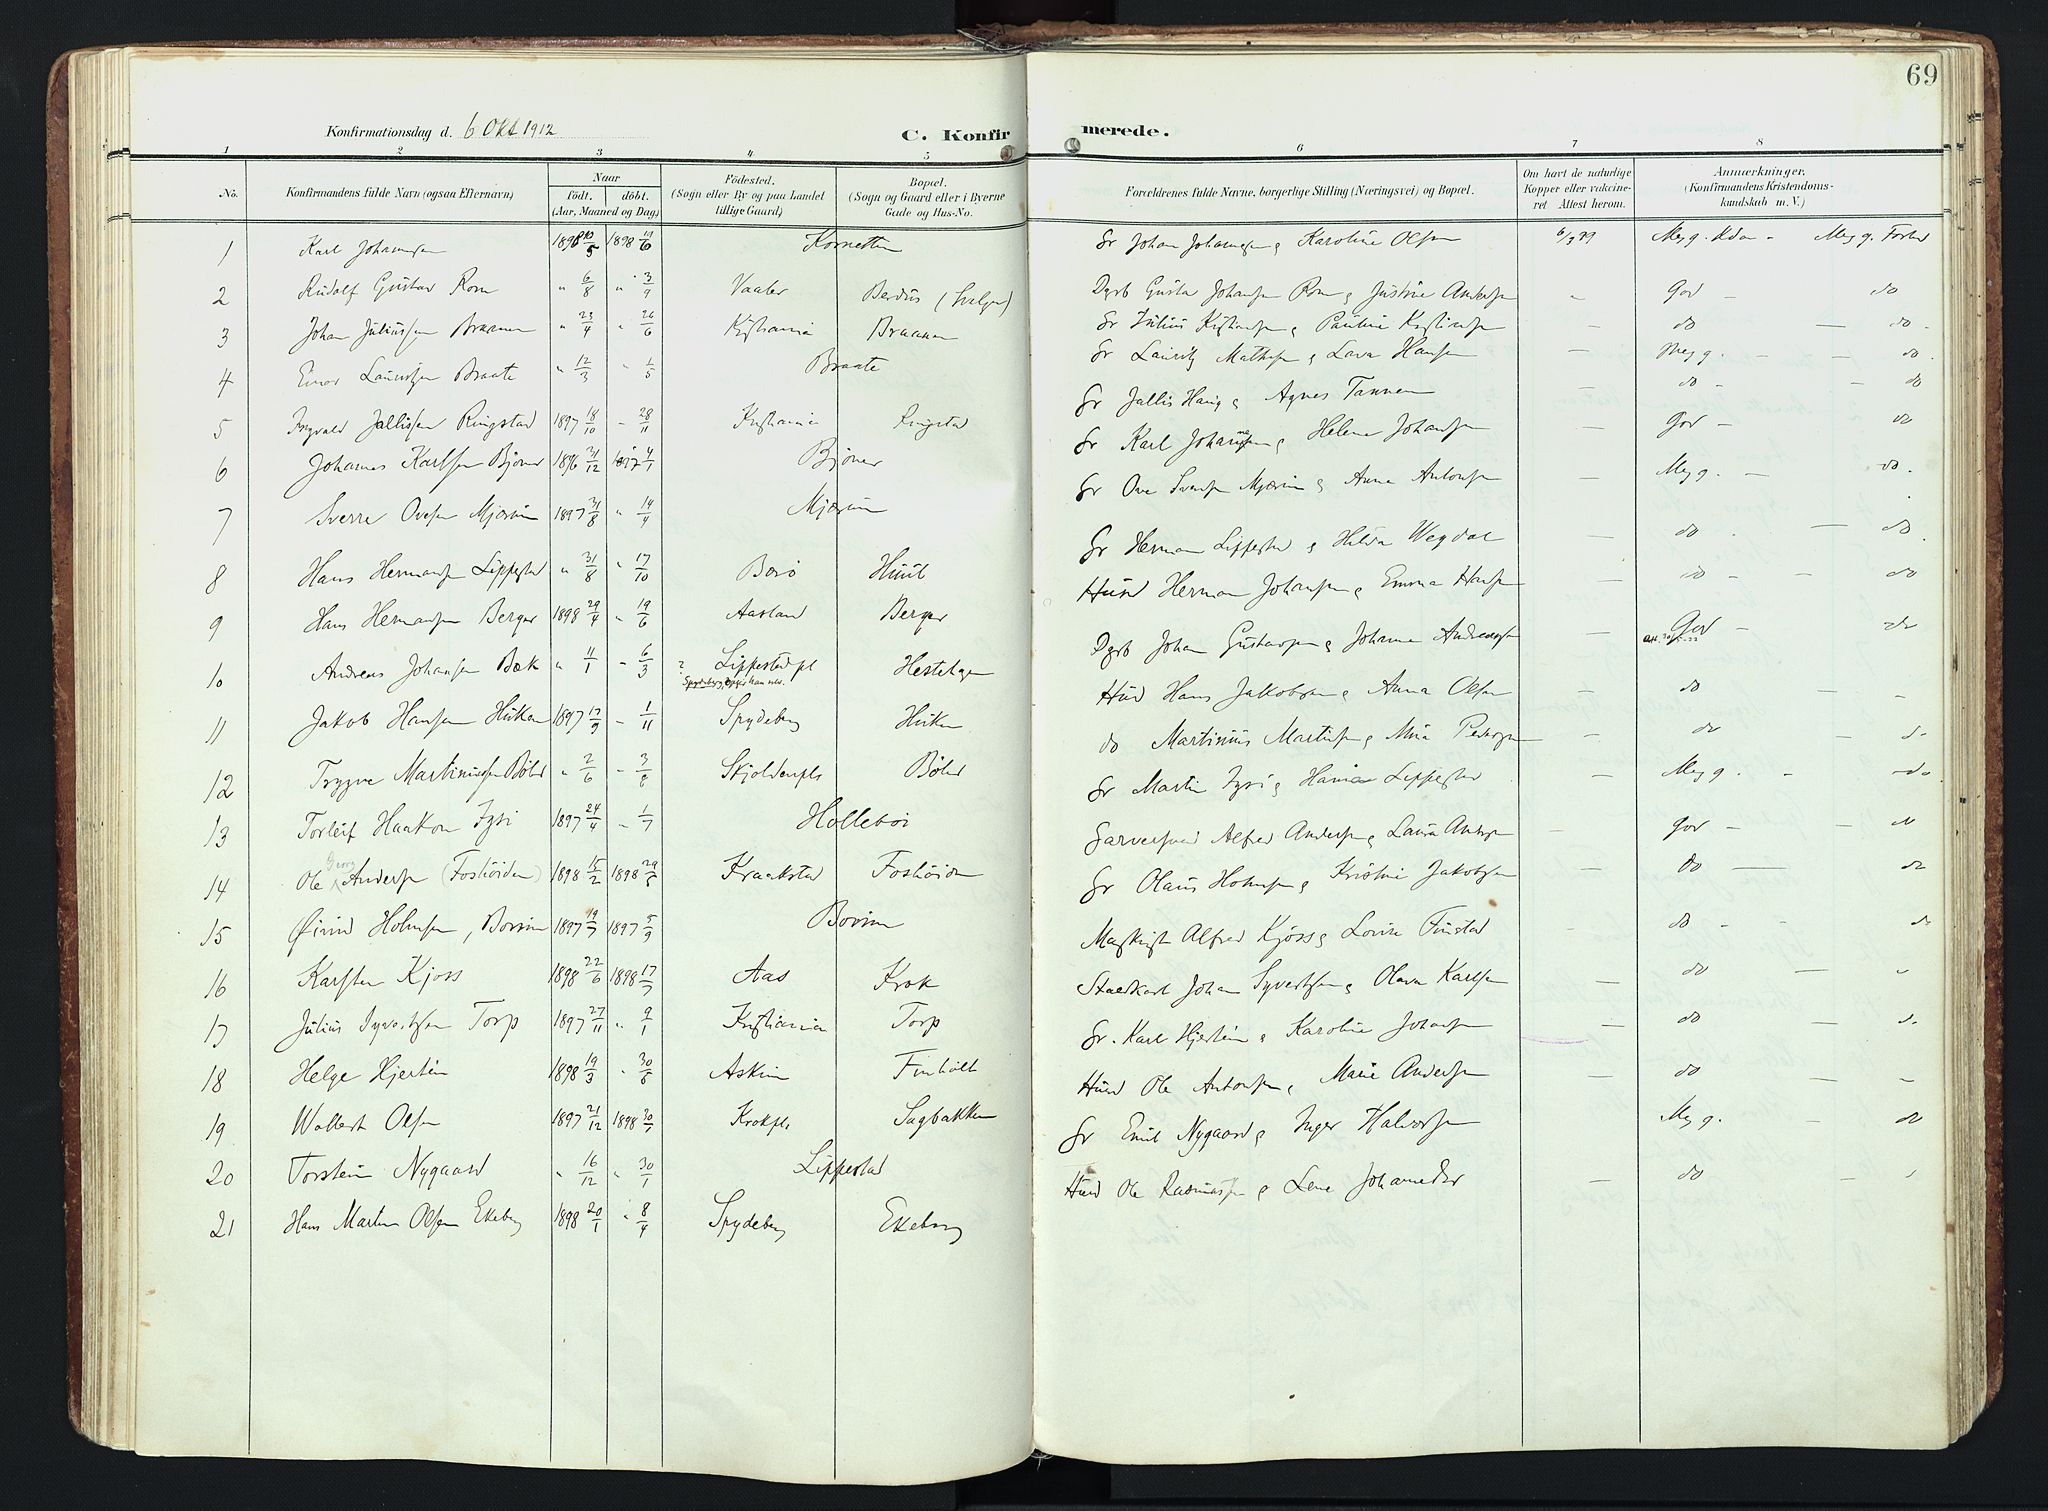 69
Konfirmationsdag d. 6 Okt 1912
C. Konfirmerede.
1 2 3 4 5 6 7 8
No. Konfirmandens fulde Navn (ogsaa Efternavn). Naar født. døbt. (Aar, Maaned og Dag.) Fødested. (Sogn eller By og paa Landet tillige Gaard.) Bopæl. (Sogn og Gaard eller i Byerne Gade og Hus-No. Forældrenes fulde Navne, borgerlige Stilling (Næringsvei) og Bopæl. Om havt de naturlige Kopper eller vaccineret. Attest herom. Anmærkninger. (Konfirmandens Kristendomskundskab m. V.)
1 Karl Johannesen 1898 5 1898 19/6 Kornetten Gr Johan Johannesen & Karoline Olsen Meg g. Kdom - Meg g. Forhold
2 Rudolf Gustav Rom " 6/8 " 3/9 Vaaler Gustav Johansen Rom & Justine Andersen - God - do
3 Johan Juliussen Braanen " 23/4 " 26/6 Kristiania Braanen Gr Julius Kristiansen & Pauline Kristiansen - do - do
4 Einar Lauritzen Braate " 12/3 " 1/5 Braate Gr Lauritz Mathisen & Lava Hansen - Meg g. - do
5 Ingvald Jallissen Ringstad 1897 18/10 - 28/11 Kristiania Ringstad Gr Jallis Haug & Agnes Tannem - do - do
6 Johannes Karlsen Bjøner 1896 31/12 1897 4/1 Bjøner Gr Karl Johannesen & Helene Johansen - God - do
7 Sverre Ovesen Mjærum 1897 31/8 " 14/4 Mjærum Gr Ove Svensen Mjærum & Anna Antonsen - Meg g. - do
8 Hans Hermansen Lippestad " 31/8 " 17/10 Huul Gr Herman Lippestad & Hilda Wegdal - do - do
9 Hans Hermansen Berger 1898 29/4 " 19/6 Aasland Berger Husmd Herman Johansen & Emma Hansen - do - do
10 Andreas Johansen Bæk " 11/1 - 6/3 ? Lippestadpl Spydeberg, opgir han selv. Johan Gustavsen & Johanne Andreassen - God - do
11 Jakob Hansen Huken 1897 17/9 - 1/11 Spydeberg Huken Husmd Hans Jakobsen & Anna Olsen do - -
12 Trygve Martiniussen Bøler " 2/6 - 3/8 Skjoldenpls Bøler do Martinius Martinsen & Mina Pedersen - do - do
13 Torleif Haakon Fysi 1897 24/4 - 1/7 Hollebøi Gr Martin Fysi & Hanna Lippestad - Meg g. - do
14 Ole Georg Andersen (Foshøiden) 1898 15/2 1898 29/5 Kraakstad Foshøiden Garversvend Alfred Andersen & Laura Andersen - God - do
15 Øivind Holmsen, Bovim 1897 19/7 1897 5/9 Bovim Gr Olaus Holmsen & Kristine Jakobsen - do - do
16 Karsten Kjøss 1898 22/6 1898 17/7 Aas Krok Alfred Kjøss & Lovise Finstad - do - do
17 Julius Syvertsen Torp 1897 27/11 " 9/1 Kristiania Torp Staldkarl Johan Syvertsen & Olava Karlsen - do - "
18 Helge Hjerten 1898 19/3 - 30/5 Askim Finholt Gr. Karl Hjerten & Karoline Johansen - do - do
19 Wollert Olsen 1897 21/12 1898 30/1 Krokpls Sagbakken Husmd Ole Antonsen & Marie Andersen - do - -
20 Torstein Nygaard " 16/12 " 30/1 Lippestad Gr Emil Nygaard & Inger Halvorsen Meg g. - do
21 Hans Martin Olsen Ekeberg 1898 20/1 " 8/4 Spydeberg Ekeberg Husmd Ole Rasmussen & Lene Johannesdr - do - "